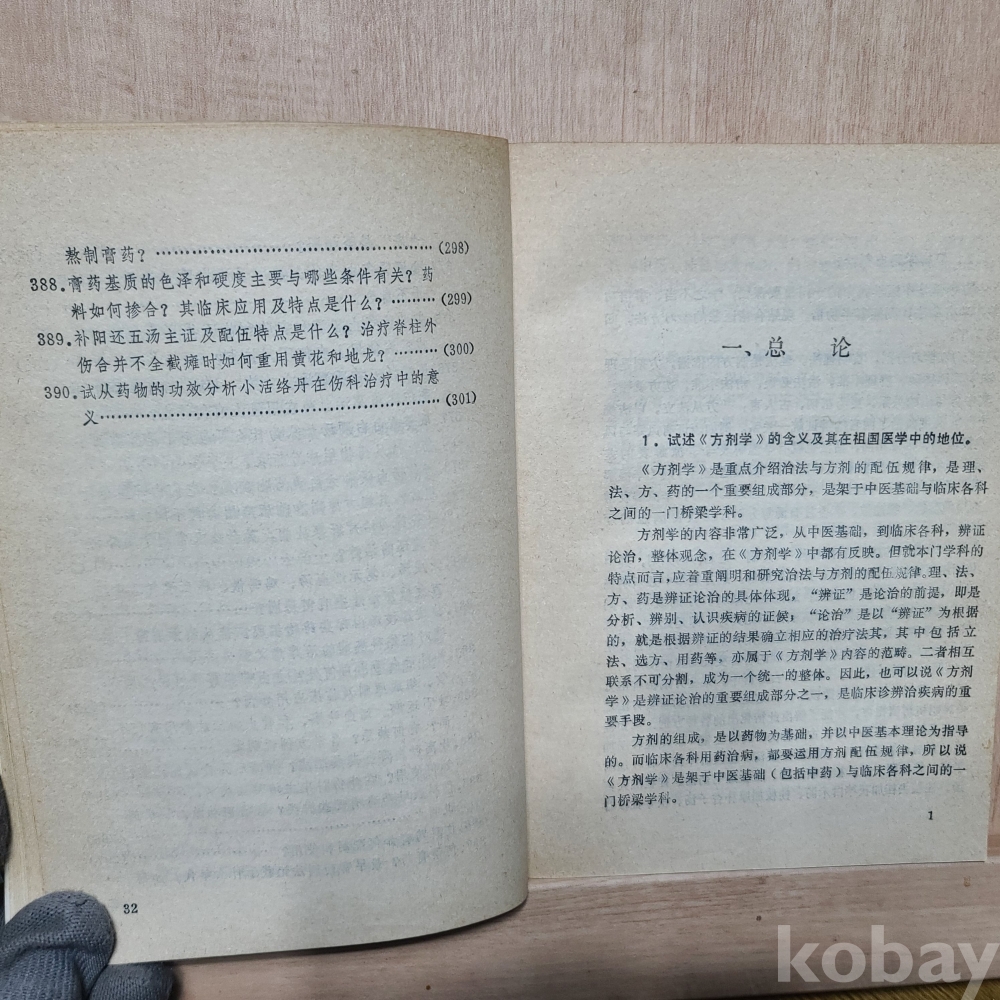 熬制膏药？………………………………………(298)
388.膏药基质的色泽和硬度主要与哪些条件有关？药
料如何掺合？其临床应用及特点是什么？………(299)
389.补阳还五汤主证及配伍特点是什么？治疗脊柱外
伤合并不全截瘫时如何重用黄花和地龙？………(300)
390.试从药物的功效分析小活络丹在伤科治疗中的意
义……………………………………………………(301)
32
一、总 论
1．试述《方剂学》的含义及其在祖国医学中的地位。
《方剂学》是重点介绍治法与方剂的配伍规律，是理、
法、方、药的一个重要组成部分，是架于中医基础与临床各科
之间的一门桥梁学科。
方剂学的内容非常广泛，从中医基础，到临床各科，辨证
论治，整体观念，在《方剂学》中都有反映。但就本门学科的
特点而言，应着重阐明和研究治法与方剂的配伍规律。理、法、
方、药是辨证论治的具体体现，“辨证”是论治的前提，即是
分析、辨别、认识疾病的证候；“论治”是以“辨证”为根据
的，就是根据辨证的结果确立相应的治疗法其，其中包括立
法、选方、用药等，亦属于《方剂学》内容的范畴。二者相互
联系不可分割，成为一个统一的整体。因此，也可以说《方剂
学》是辨证论治的重要组成部分之一，是临床诊辨治疾病的重
要手段。
方剂的组成，是以药物为基础，并以中医基本理论为指导
的。而临床各科用药治病，都要运用方剂配伍规律，所以说
《方剂学》是架于中医基础（包括中药）与临床各科之间的一
门桥梁学科。
1
kobay